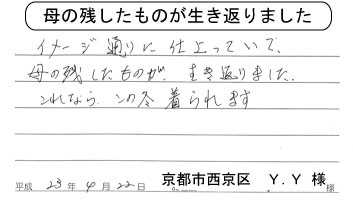 母の残したものが生き返りました
イメージ通りに仕上っていて、
母の残したものが、生き返りました。
これなら、この冬着られます
平成 23年 4月 22日 京都市西京区 Y.Y 様 様